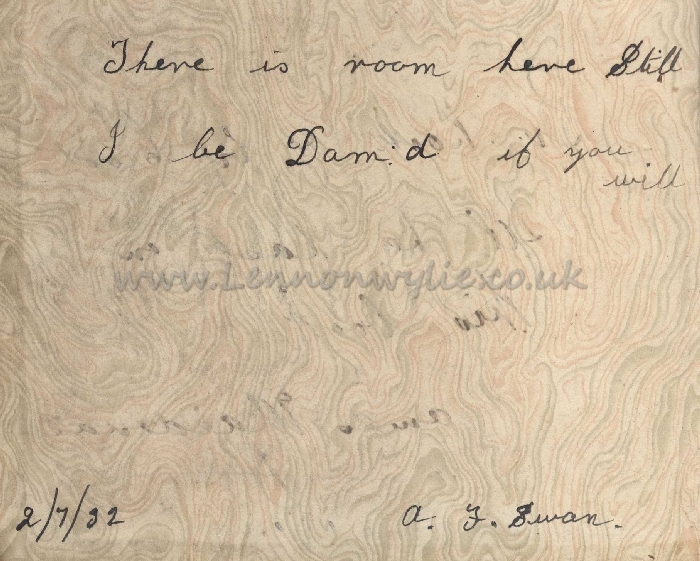 There is room here Still
I be Dam:d if you
will
www.Lennonwylie.co.uk
2/7/32
A. F. Swan.